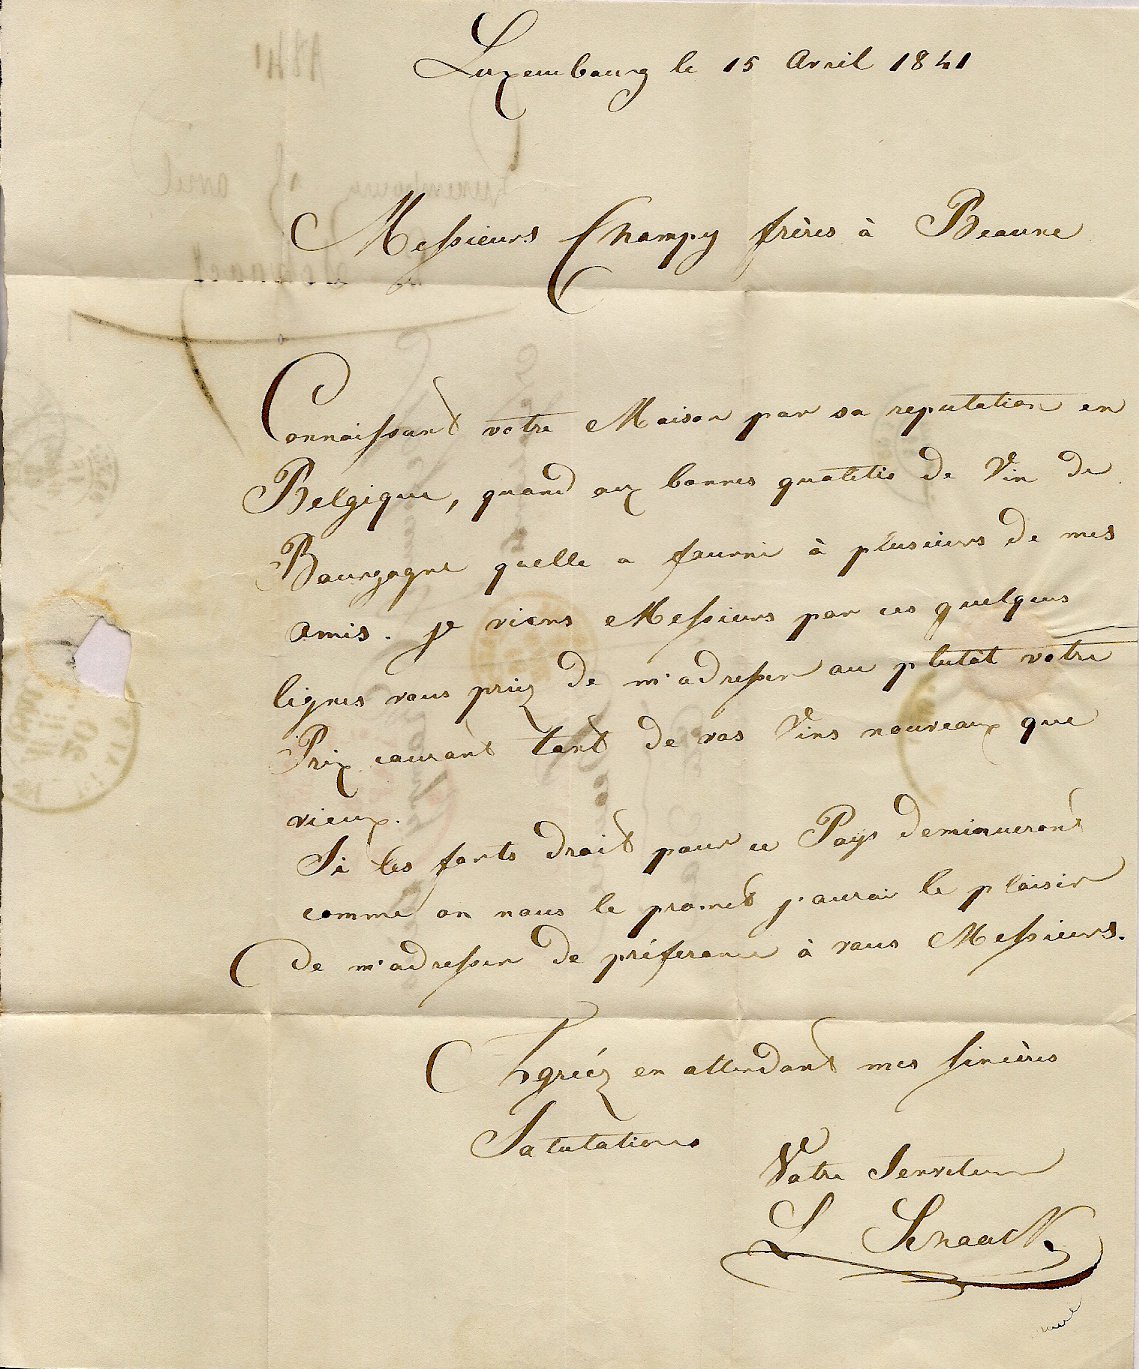 Luxembourg le 15 Avril 1841
Messieurs Champy frères à Beaune
Connaissant votre Maison par sa reputation en
Belgique, quand aux bonnes qualités de Vin de
Bourgogne quelle a fourni à plusieurs de mes
amis. je viens Messieurs par ces quelques
lignes vous priez de m'adresser au plutôt votre
Prix courant tant de vos Vins nouveaux que
vieux.
Si les forts droits pour ce Pays deminueront
comme on nous le promet j'aurai le plaisir
de m'adresser de préference à vous Messieurs.
Agréez en attendant mes sincères
Salutations
Votre Serviteur
L Schaack